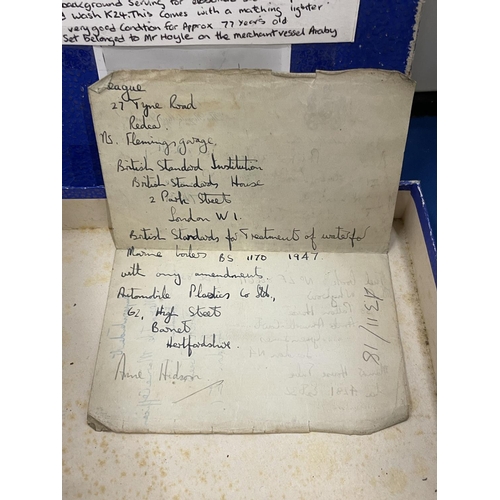 background serving for
Wash K24. This comes with a matching lighter
very good condition for Approx 77 year's old
Set belonged to Mr Hoyle on the merchant vessel Araby
eague
27 Tyne Road
Redcar
Ns. Flemings garage.
British Standard Institution
British Standards House
2 Park Street
London W1.
British Standards for Treatment of water for
Marine boilers BS 1170 1947
with any amendments
Automobile Plastics Co Ltd,
62, High Street
Barnet
Hertfordshire.
Anne Hudson
A311/18